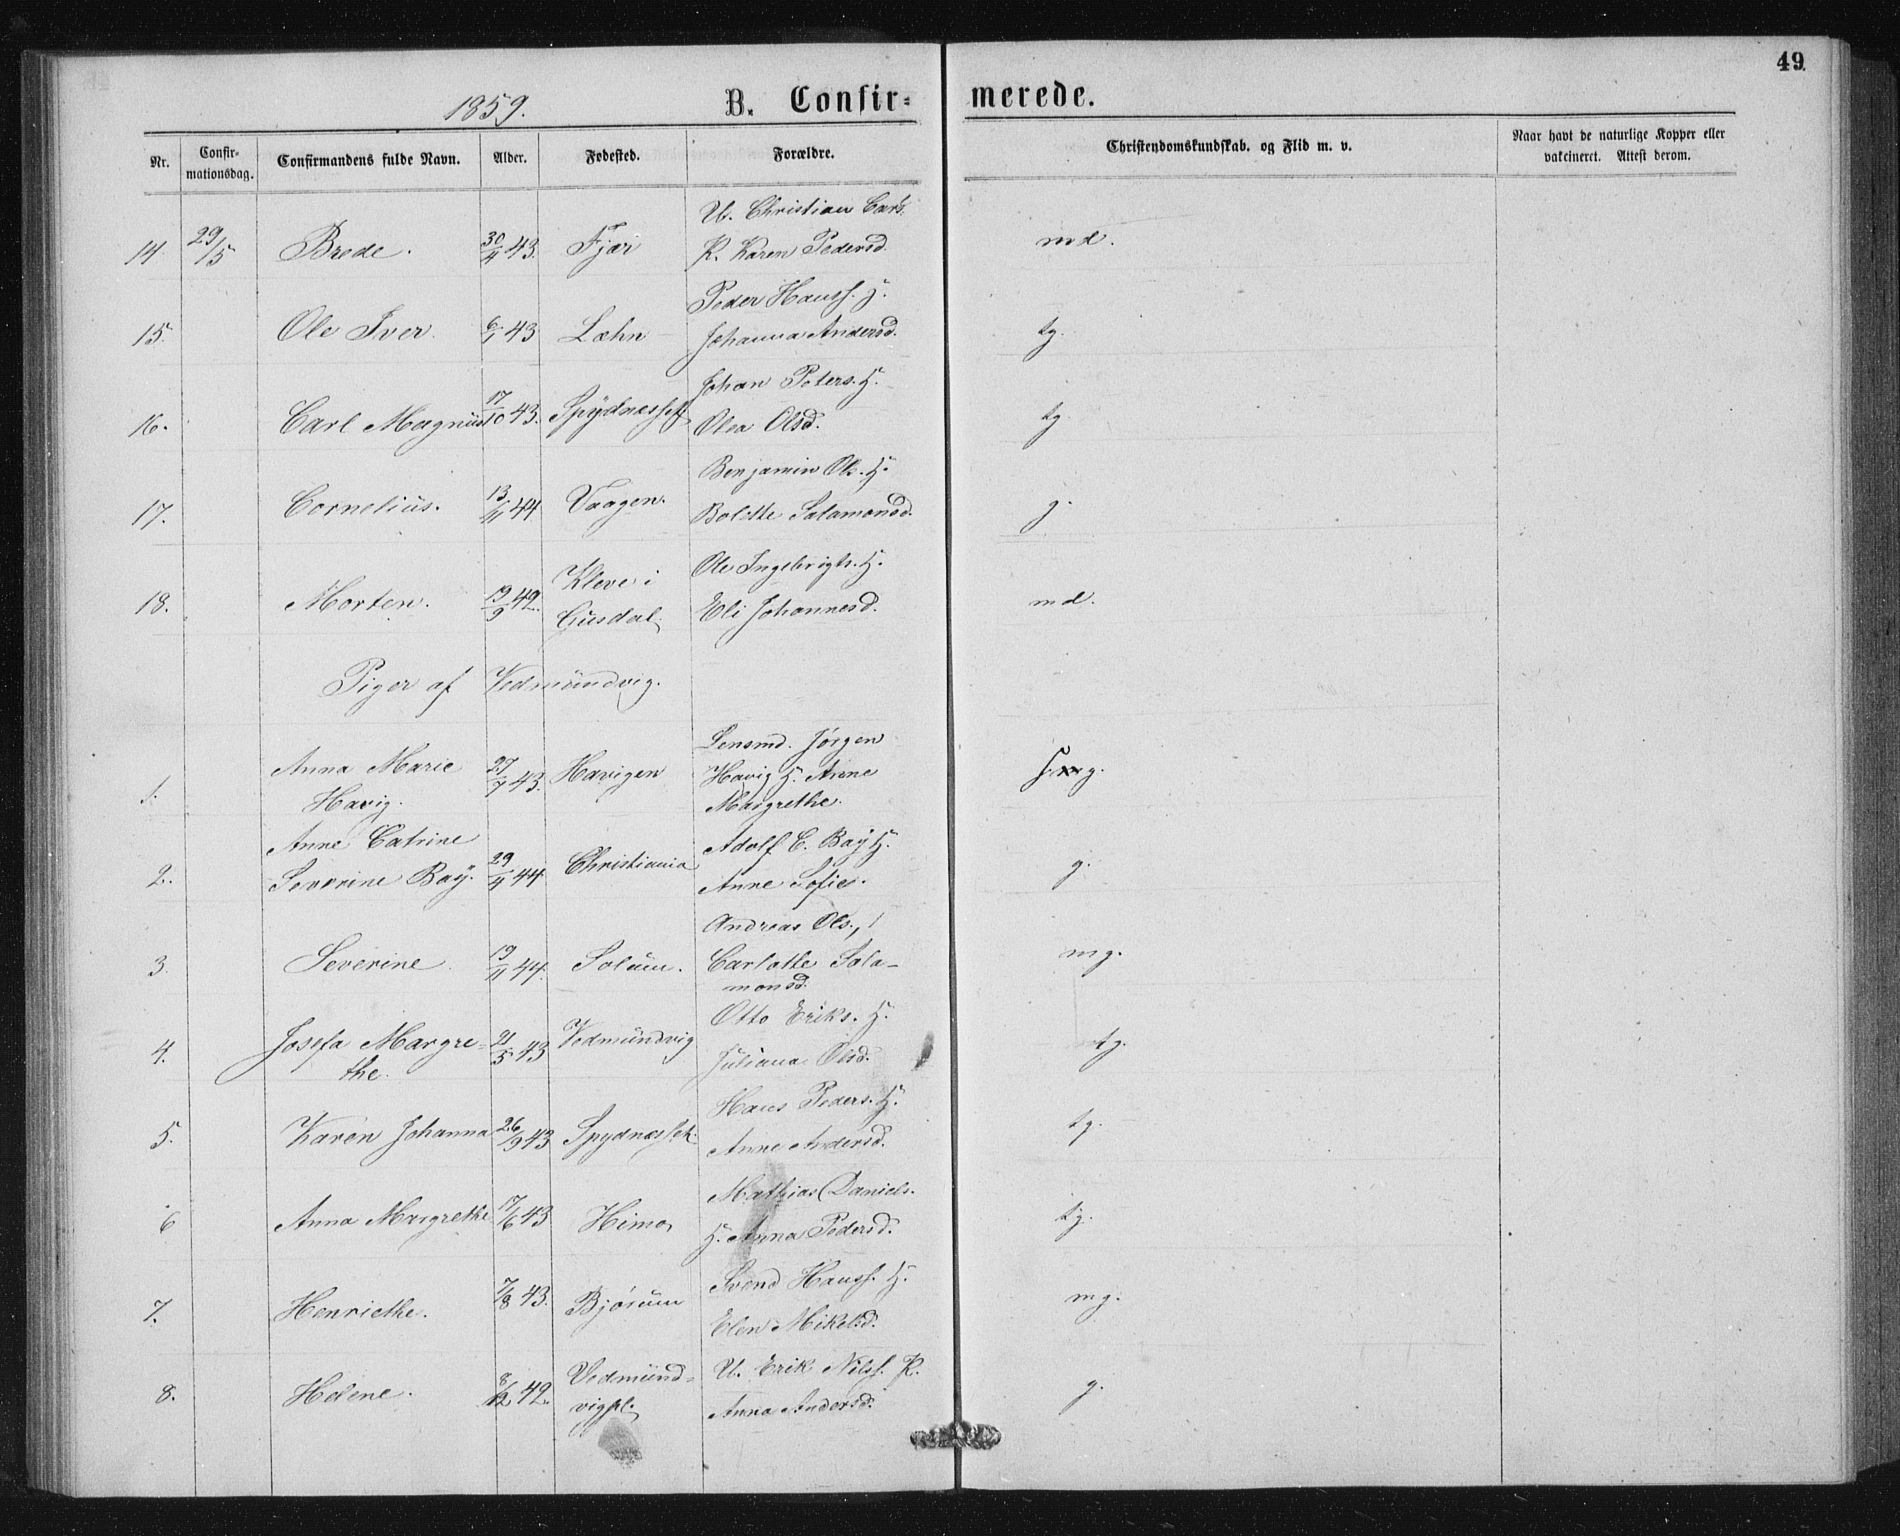 49
1859.
B. Confir- merede.
Nr.
Confir-
mationsdag.
Confirmandens fulde Navn.
Alder.
Fødested.
Forældre.
Christendomskundskab. og Flid m. v.
Naar havt de naturlige Kopper eller
vakcineret. Attest derom.
U. Christian Carls.
14. 29/5 Brede. 43. Fjær K. Karen Pedersd. md.
Peder Hanss. H.
15. Ole Iver. 6/1 43 Læhn Johanna Andersd. tg.
Johan Peters. H.
16. Carl Magnus 17/10 43. Olea Olsd. tg
Benjamin Ols. H.
17. Cornelius. 13/11 44. Vaagen. Bolette Salamonsd. g.
Kleve i Ole Ingebrigts. H.
18. Morten. 19/9 42. Gusdal. Eli Johannesd. md.
Piger af Vedmundvig.
Lensmd. Jørgen
Anna Marie 27/7 43. Havigen Havig H. Anne g.
1. Havig. Margrethe.
Anne Catrine Adolf C. Baÿ H.
2. Severine Baÿ. 44. Christiania Anne Sofie. g.
Andreas Ols.,
3. Severine. 19/11 44. Solum. Carlotte Sala-
monsd.
mg.
Otto Eriks. H.
4. Josefa Margre- 21/5 43 Vedmundvig Juliana Olsd. tg.
the.
Hans Peders. H.
5. Karen Johanna 26/9 43 Anne Andersd. tg.
Mathias Daniels.
6 Anna Margrethe 17/6 43 Himo H. Anna Pedersd. tg.
Svend Hanss. H.
7. Henriethe. 7/8 43. Bjørum Elen Mikelsd. mg.
Vedmund- U. Erik Nilss. K.
8. Helene. 8/12 42. vigpl. Anna Andersd. g.